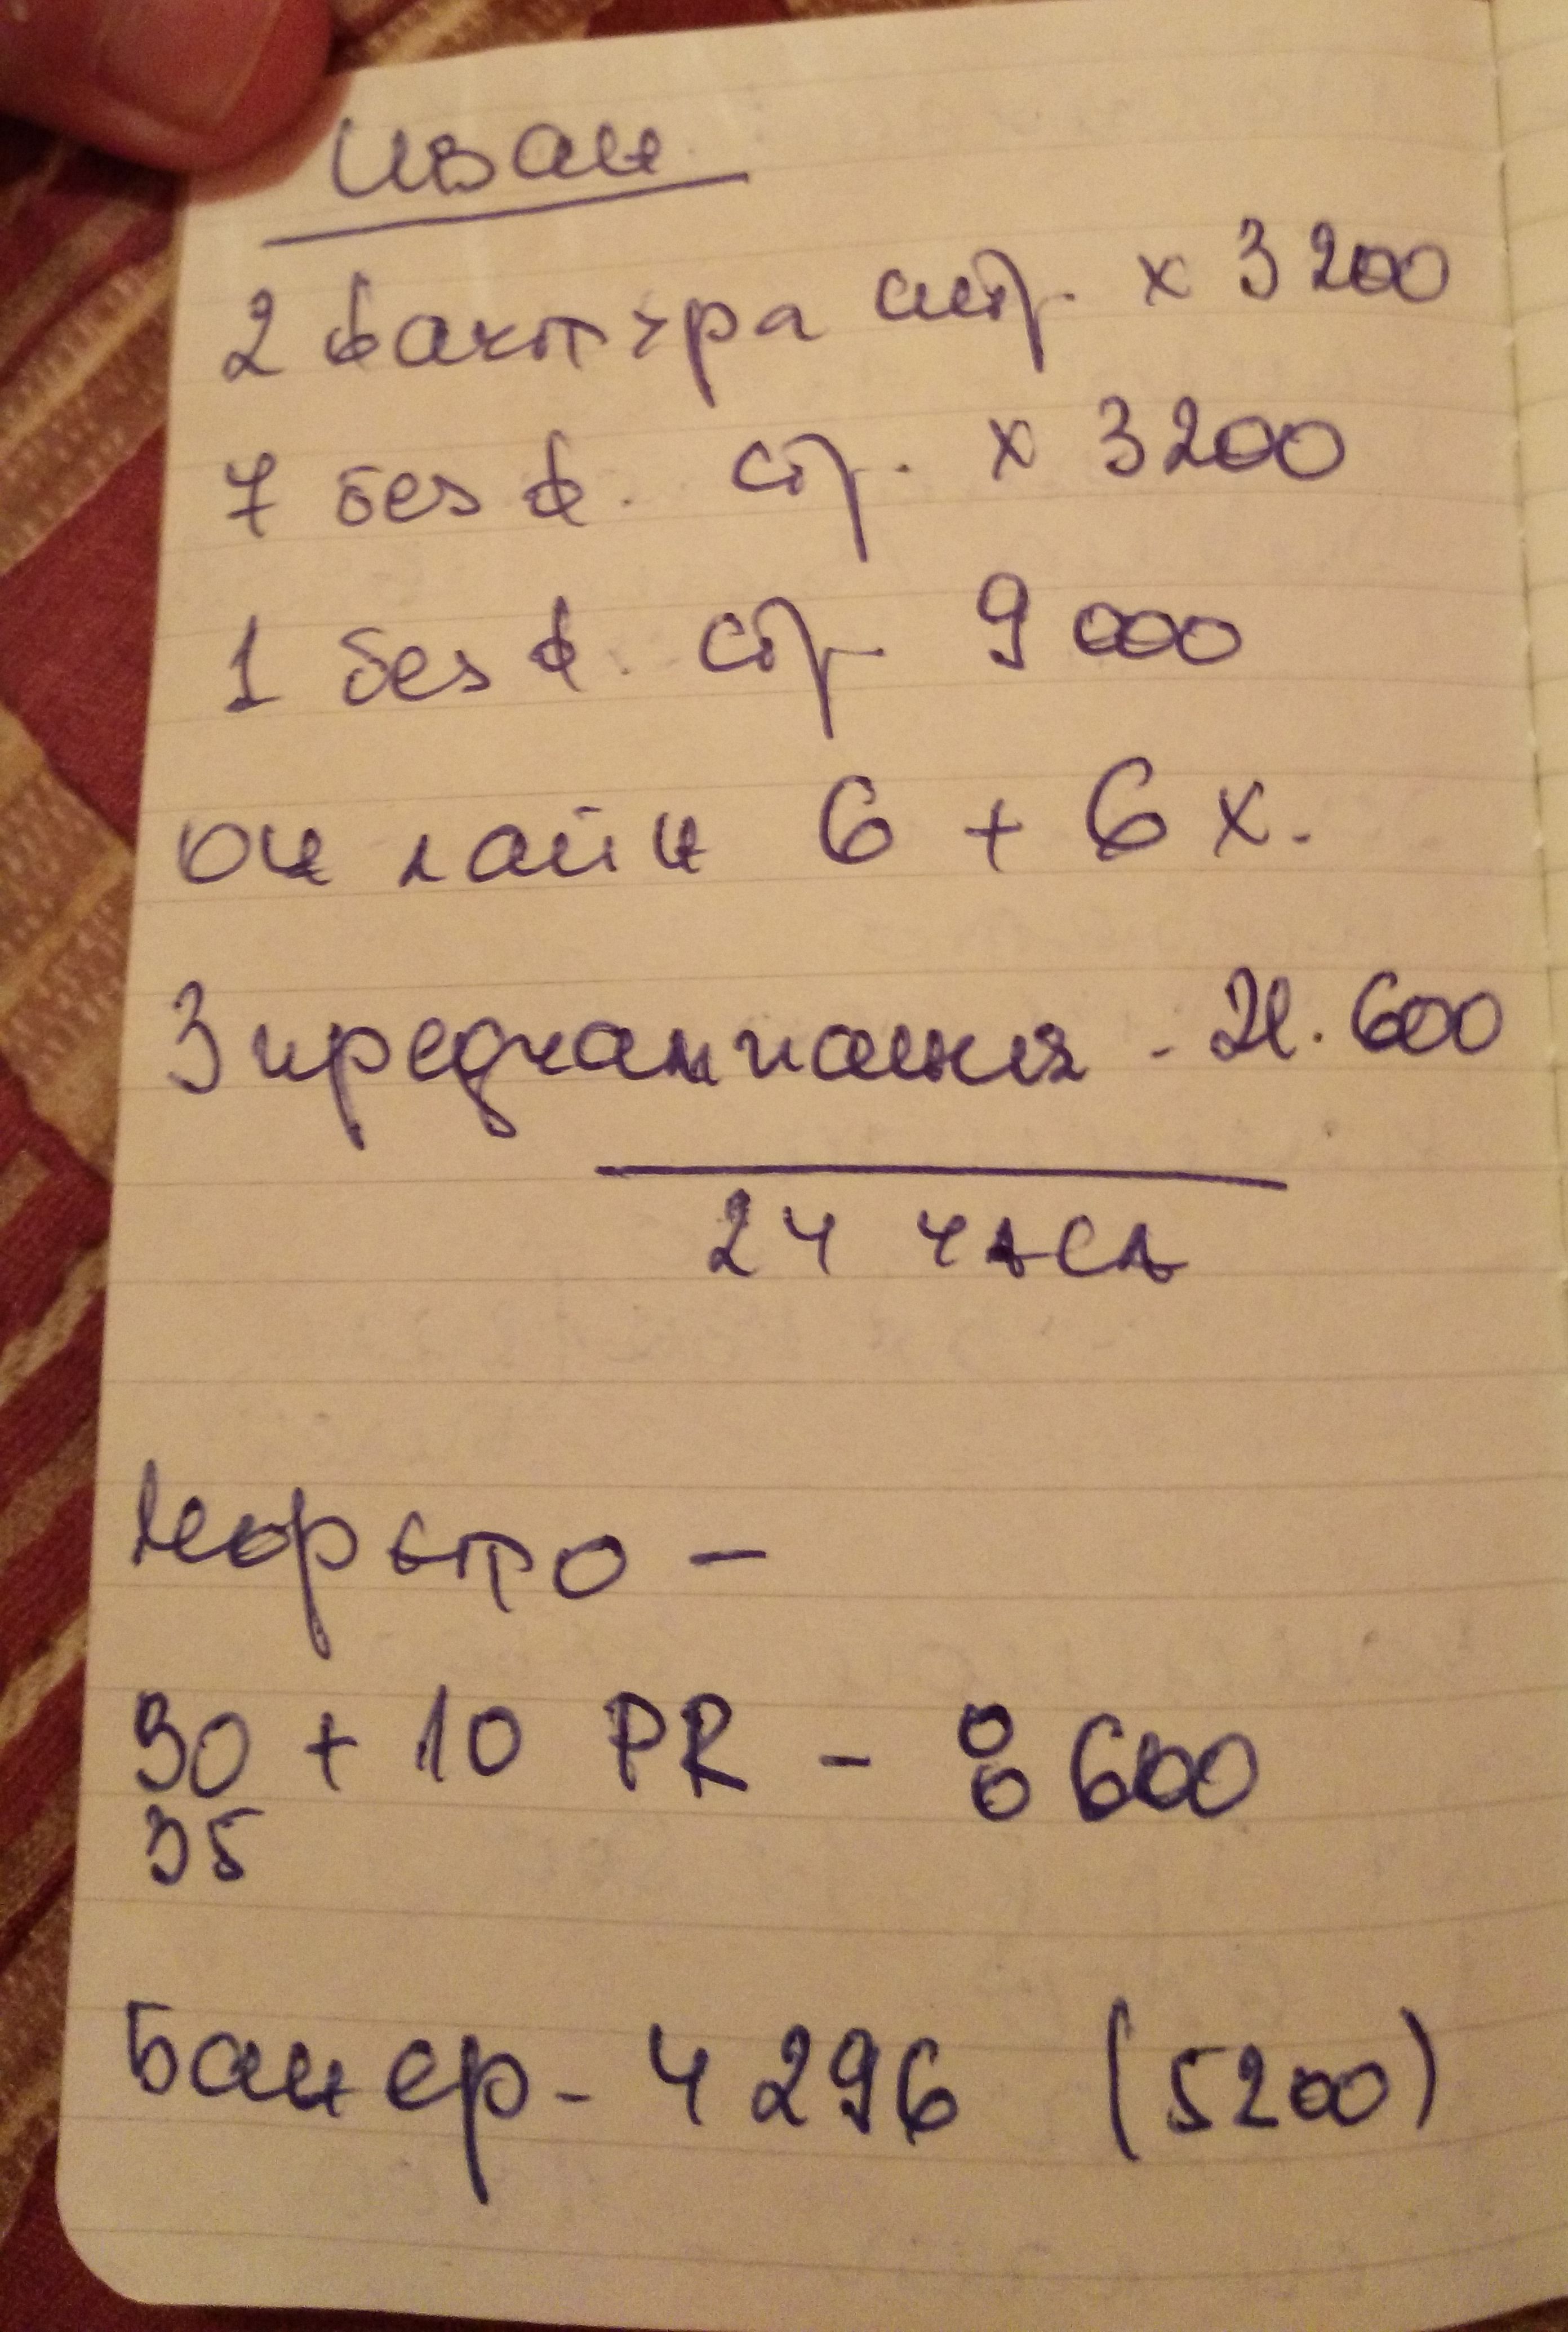 Иван
2 фактура стр. х 3 200
7 без ф. стр. х 3200
1 без ф. стр. 9 000
он лайн 6 + 6 х.
3 предкампания - 21.600
24 часа
30 + 10 PR - 8 600
35
Банер - 4 296 (5200)